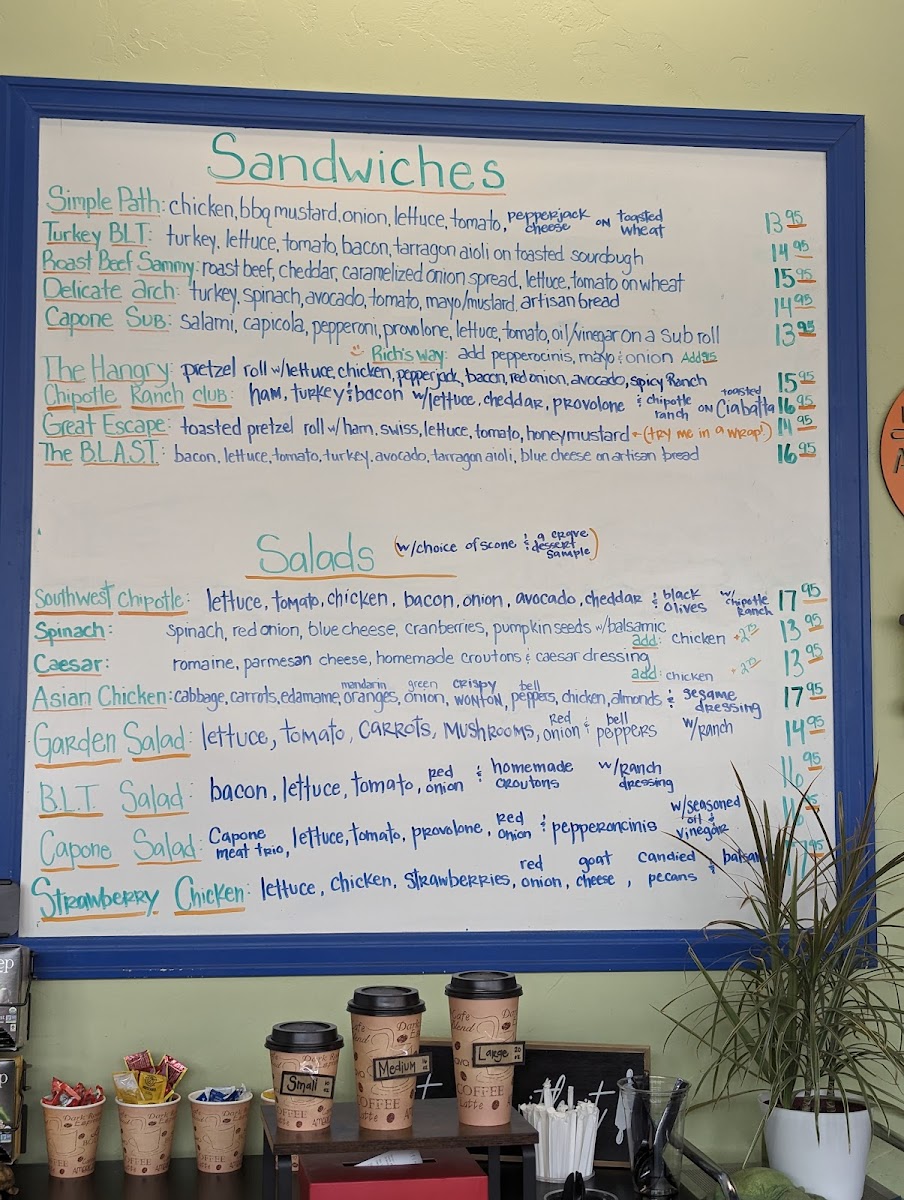 Sandwiches
Simple Path: chicken, bbq mustard, onion, lettuce, tomato, pepperjack cheese on toasted wheat 13 95
Turkey BLT: turkey, lettuce, tomato, bacon, tarragon aioli on toasted sourdough 14 95
Roast Beef Sammy: roast beef, cheddar, caramelized onion spread, lettuce, tomato on wheat 15 95
Delicate Arch: turkey, spinach, avocado, tomato, mayo/mustard, artisan bread 14 95
Capone Sub: salami, capicola, pepperoni, provolone, lettuce, tomato, oil/vinegar on a sub roll 13 95
Rich's way: add pepperocinis, mayo & onion Add 95
The Hangry: pretzel roll w/lettuce, chicken, pepperjack, bacon, red onion, avocado, spicy Ranch 15 95
Chipotle Ranch club: ham, turkey & bacon w/lettuce, cheddar, provolone & chipotle ranch on toasted Ciabatta 16 95
Great Escape: toasted pretzel roll w/ham, swiss, lettuce, tomato, honey mustard - (try me in a wrap!) 14 95
The B.L.A.S.T.: bacon, lettuce, tomato, turkey, avocado, tarragon aioli, blue cheese on artisan bread 16 95
Salads (w/choice of scone & a crave dessert sample)
Southwest Chipotle: lettuce, tomato, chicken, bacon, onion, avocado, cheddar & black olives w/ chipotle Ranch 17 95
Spinach: spinach, red onion, blue cheese, cranberries, pumpkin seeds w/balsamic 13 95
add: chicken +2 75
Caesar: romaine, parmesan cheese, homemade croutons & caesar dressing 13 95
add: chicken +2 75
Asian Chicken: cabbage, carrots, edamame, mandarin oranges, green onion, crispy wonton, bell peppers, chicken, almonds & sesame dressing 17 95
Garden Salad: lettuce, tomato, carrots, mushrooms, red onion & bell peppers w/ranch 14 95
B.L.T. Salad: bacon, lettuce, tomato, red onion & homemade croutons w/ranch dressing 16 95
Capone Salad: Capone meat trio, lettuce, tomato, provolone, red onion & pepperoncinis w/seasoned oil & vinegar
Strawberry Chicken: lettuce, chicken, strawberries, red onion, goat cheese, candied pecans &
Small
Medium
Large 20 oz
COFFEE
COFFEE
COFFEE
Latte